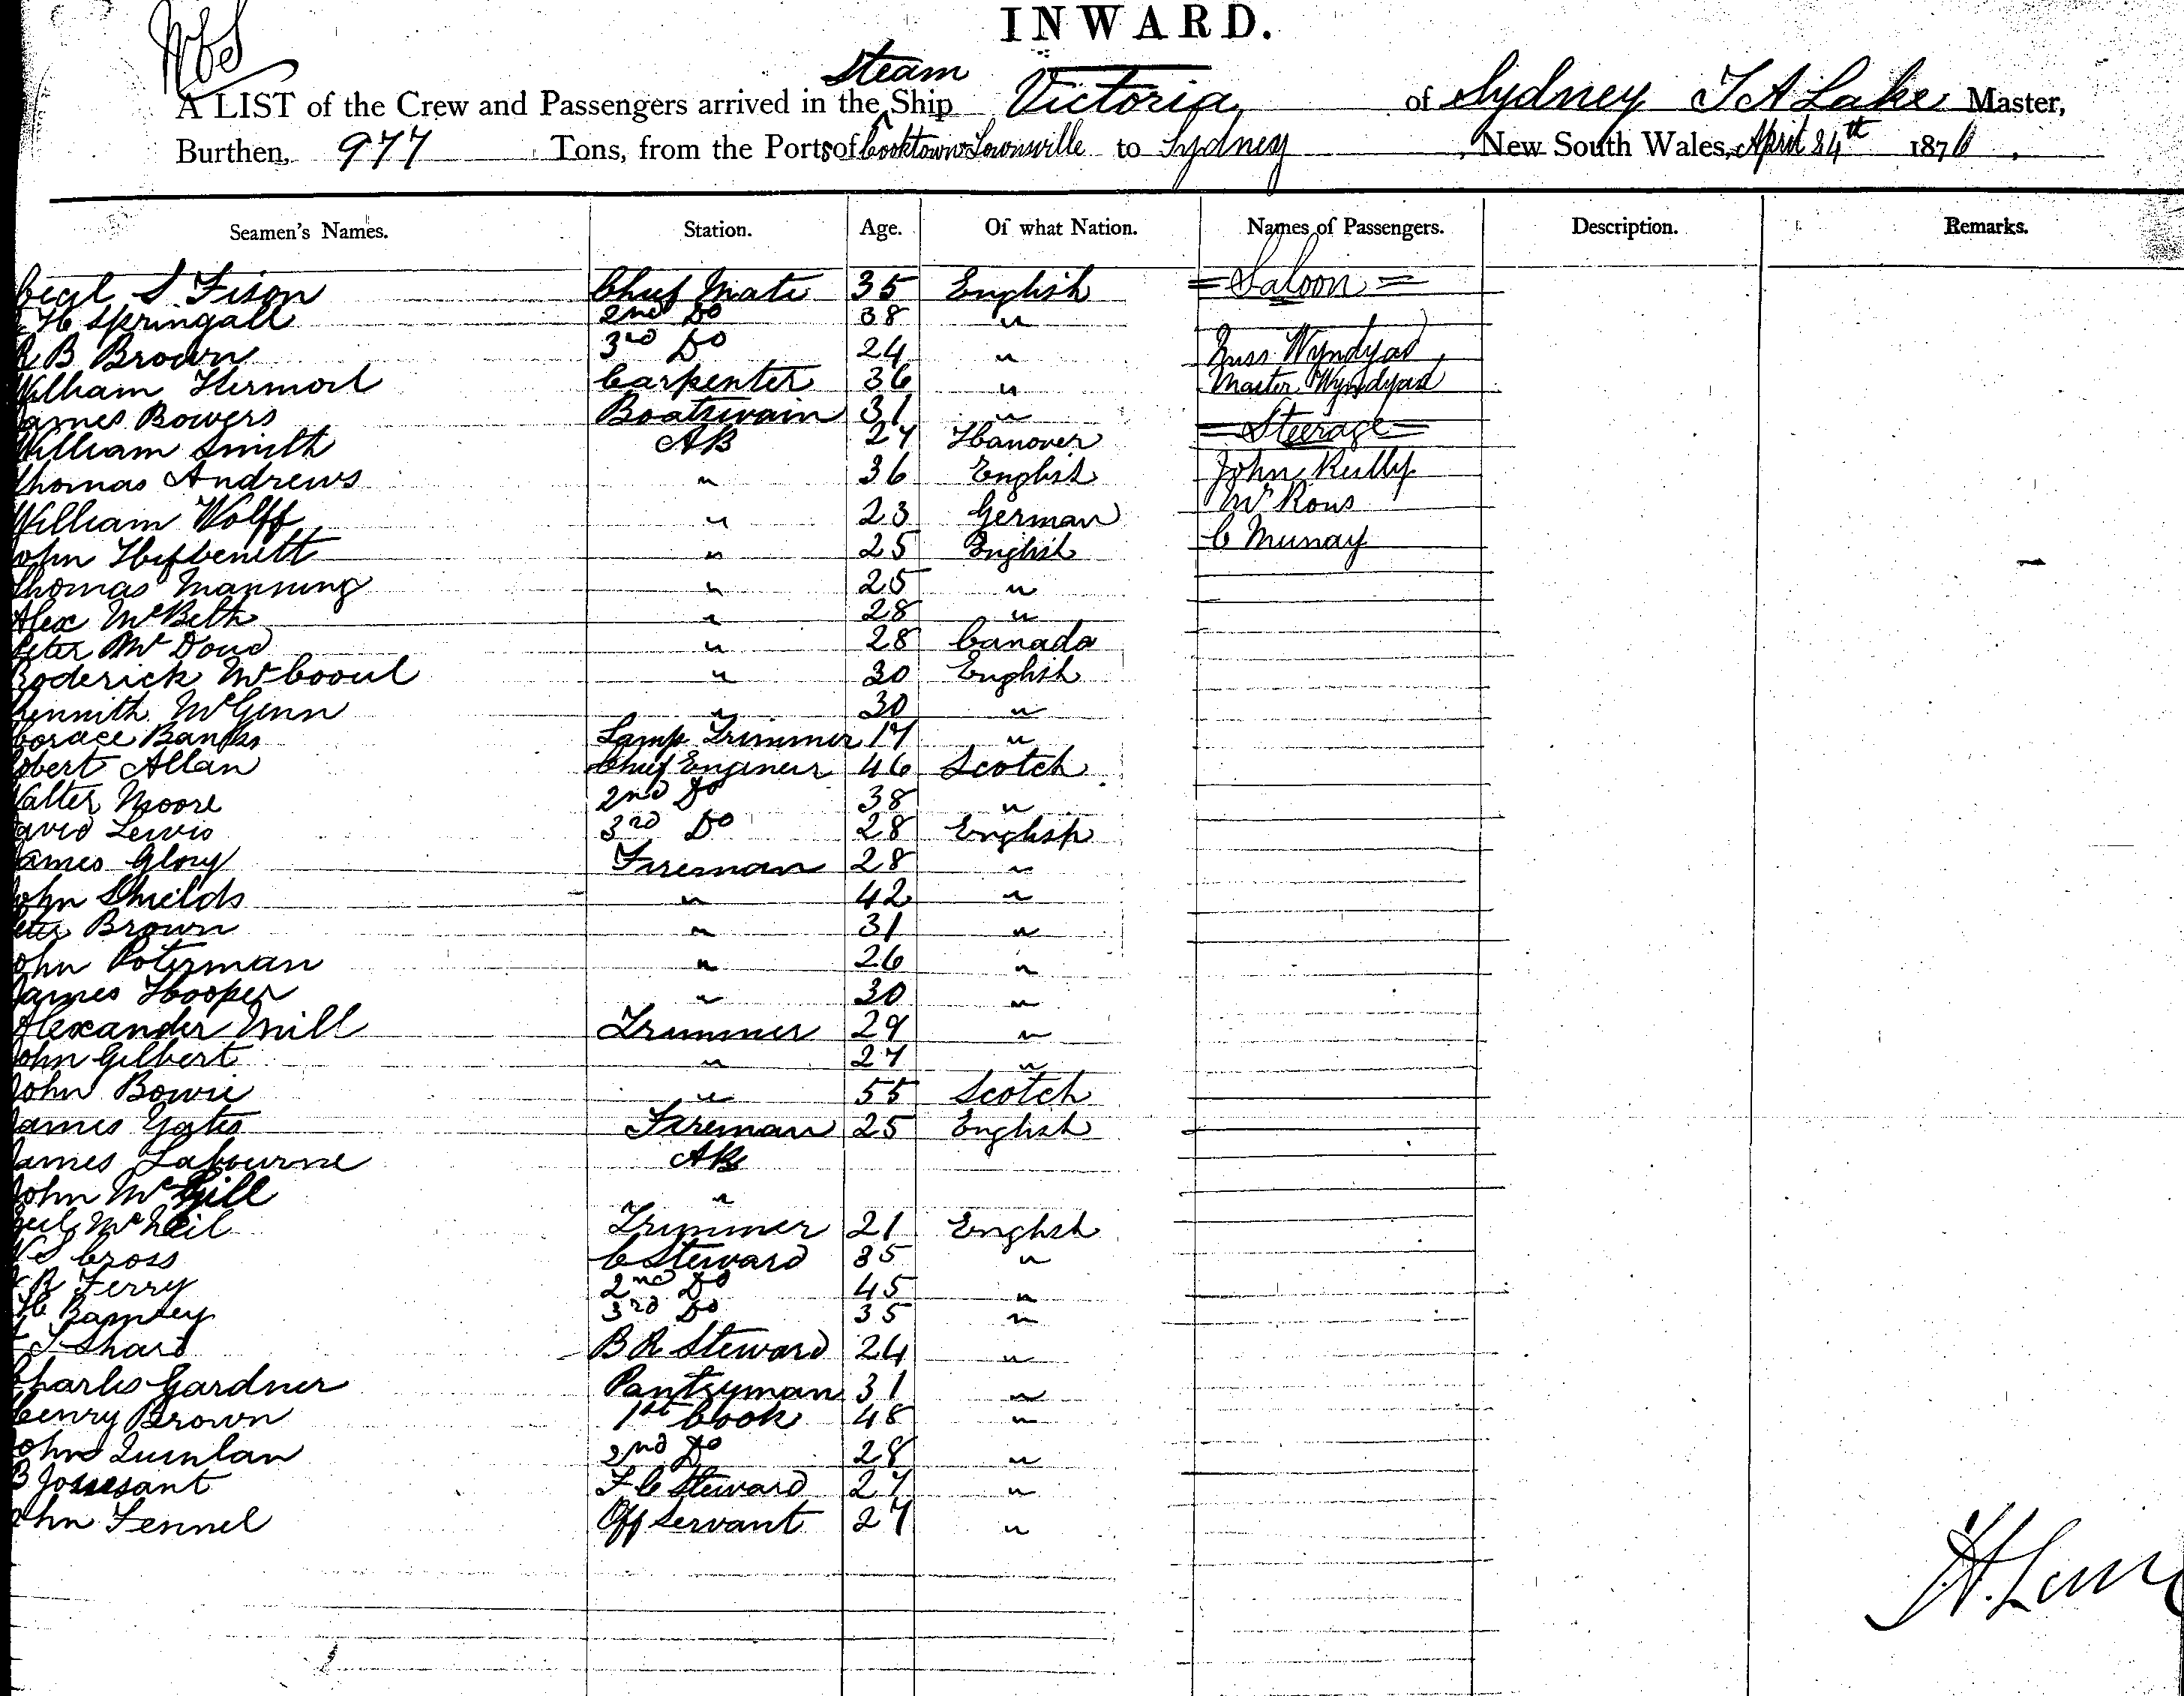 INWARD.
Steam
A LIST of the Crew and Passengers arrived in the Ship Victoria of Sydney J A Lake Master,
Burthen, 977 Tons, from the Ports of Cooktown Townsville to Sydney, New South Wales, April 24th 1876.
Seamen's Names. Station. Age. Of what Nation. Names of Passengers. Description. Remarks.
Cecil S Fison Chief Mate 35 English = Saloon =
H Springall 2nd Do 38 "
R B Brown 3rd Do 24 " Miss Wyndyad
William Hermod Carpenter 36 " Master Wyndyad
James Bowers Boatswain 31 "
William Smith AB 27 Hanover = Steerage =
Thomas Andrews " 36 English John Reilly
William Wolff " 23 German Mr Rous
John " 25 English C Murray
Thomas Manning " 25 "
Alex McBeth " 28 "
Peter McDoud " 28 Canada
Roderick " 30 English
Kennith McGinn " 30 "
Horace Banks Lamp Trimmer 17 "
Robert Allan Chief Engineer 46 Scotch
Walter Moore 2nd Do 38 "
David Lewis 3rd Do 28 English
James Glory Fireman 28 "
John Shields " 42 "
Peter Brown " 31 "
John Poterman " 26 "
James Hooper " 30 "
Alexander Mill Trimmer 29 "
John Gilbert " 27 "
John Bowie " 55 Scotch
James Yates Fireman 25 English
James Labourne AB
John McGill "
Neil McNeil Trimmer 21 English
W S Cross C Steward 35 "
R Ferry 2nd Do 45 "
H 3rd Do 35 "
Shard B R Steward 24 "
Charles Gardner Pantryman 31 "
Henry Brown 1st Cook 48 "
John Quinlan 2nd Do 28 "
B Joussant F C Steward 27 "
John Fennel Off Servant 27 "